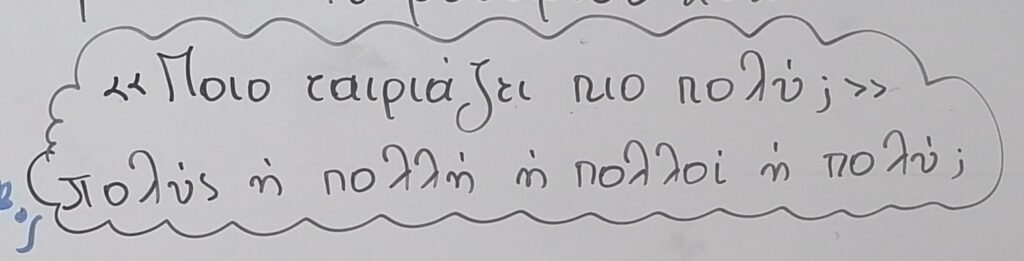 «Ποιο ταιριάζει πιο πολύ;»
πολύς ή πολλή ή πολλοί ή πολύ;